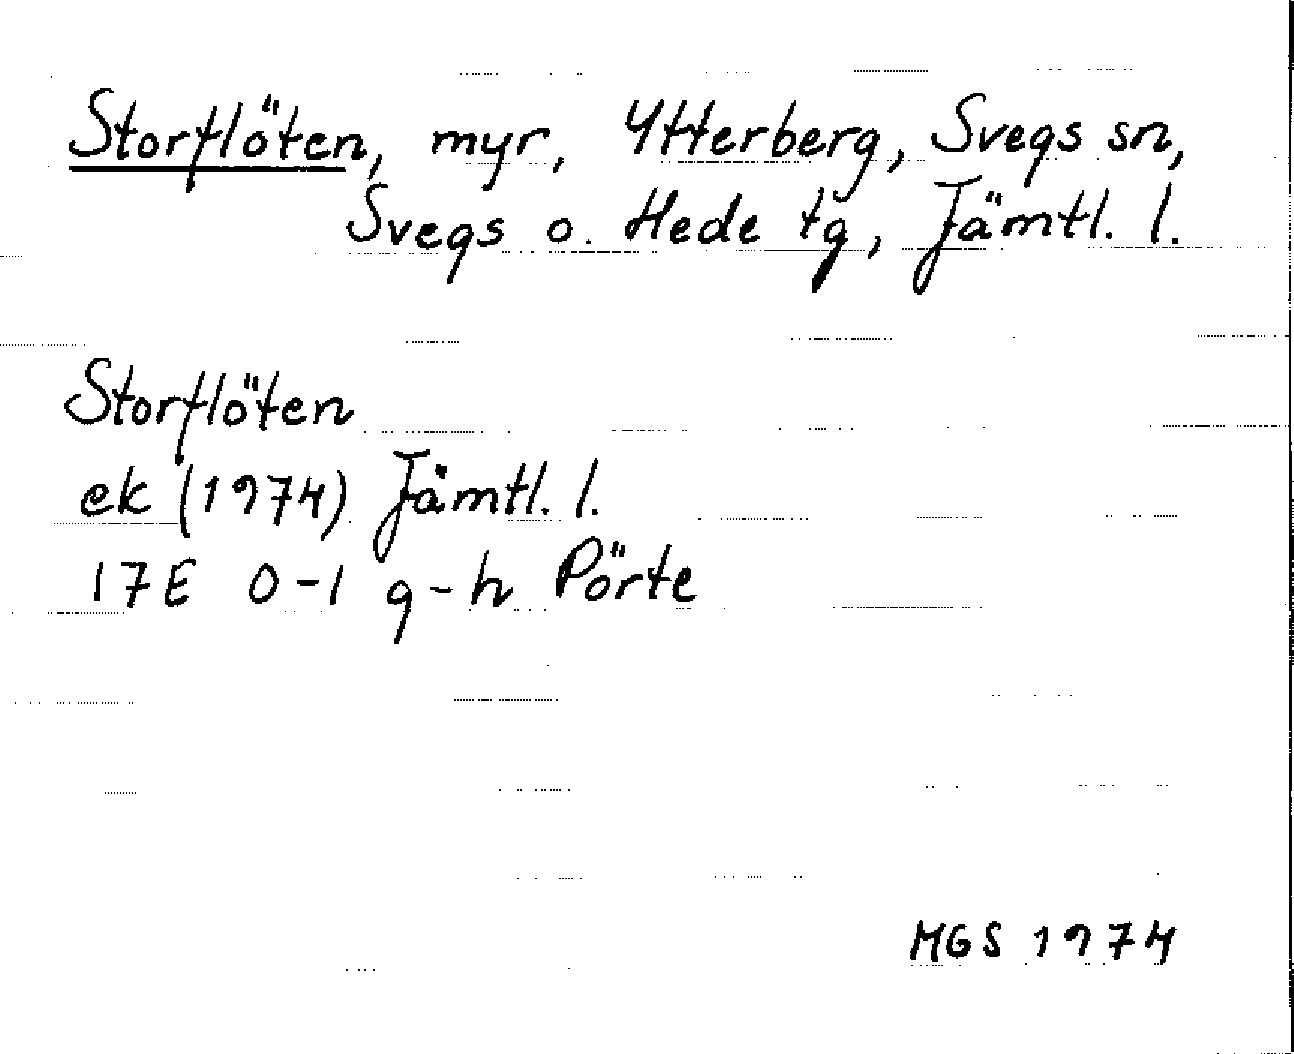 Storflöten, myr, Ytterberg, Svegs sn,
Svegs o. Hede tg, Jämtl. l.
Storflöten
ek (1974) Jämtl. l.
17E 0-1 g-h Pörte
MGS 1974